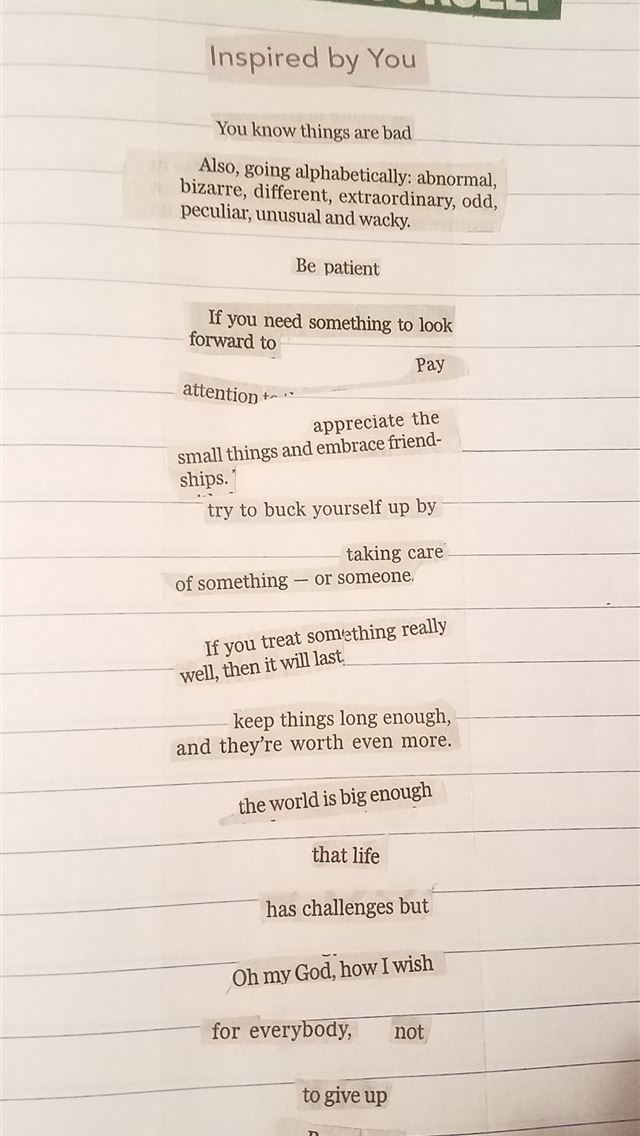 Inspired by You
You know things are bad
Also, going alphabetically: abnormal,
bizarre, different, extraordinary, odd,
peculiar, unusual and wacky.
Be patient
If you need something to look
forward to
Pay
attention
appreciate the
small things and embrace friend-
ships.
try to buck yourself up by
taking care
of something — or someone.
If you treat something really
well, then it will last
keep things long enough,
and they're worth even more.
the world is big enough
that life
has challenges but
Oh my God, how I wish
for everybody, not
to give up